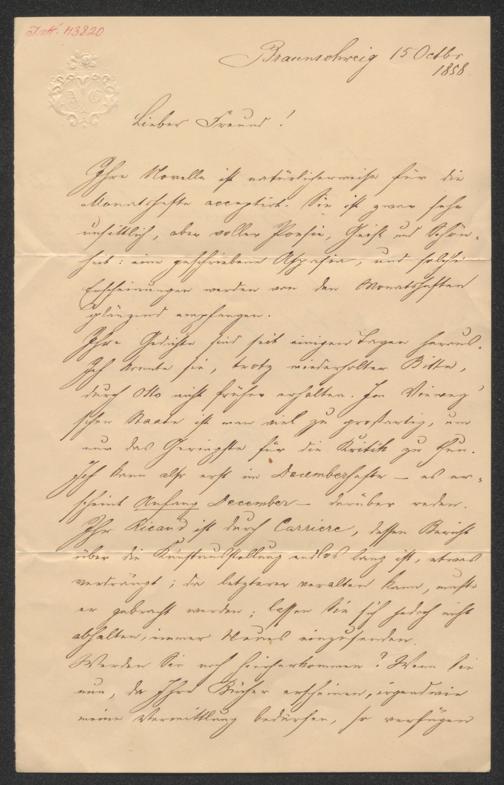 J. N. 43820
Braunschweig 15 Octbr
1858.
Lieber Freund!
Ihre Novelle ist natürlicherweise für die
Monatshefte acceptirt. Sie ist zwar sehr
unsittlich, aber voller Poesie, Geist und Schön-
heit: eine geschriebene Aspasia, und solche
Erscheinungen werden von den Monatsheften
glänzend empfangen.
Ihre Gedichte sind seit einigen Tagen heraus.
Ich konnte sie, trotz wiederholter Bitte,
durch Otto nicht früher erhalten. Im Vieweg'
schen Staate ist man viel zu großartig, um
nur das Geringste für die Kritik zu thun.
Ich kann also erst im Decemberhefte – es er-
scheint Anfang December – darüber reden.
Ihr Ricard ist durch Carriere, dessen Bericht
über die Kunstausstellung endlos lang ist, etwas
verdrängt; da letzterer veralten kann, mußte
er gebracht werden; lassen Sie sich jedoch nicht
abhalten, immer Neues einzusenden.
Werden Sie noch hierherkommen? Wenn Sie
nun, da Ihre Bücher erscheinen, irgendwie
meine Vermittlung bedürfen, so verfügen